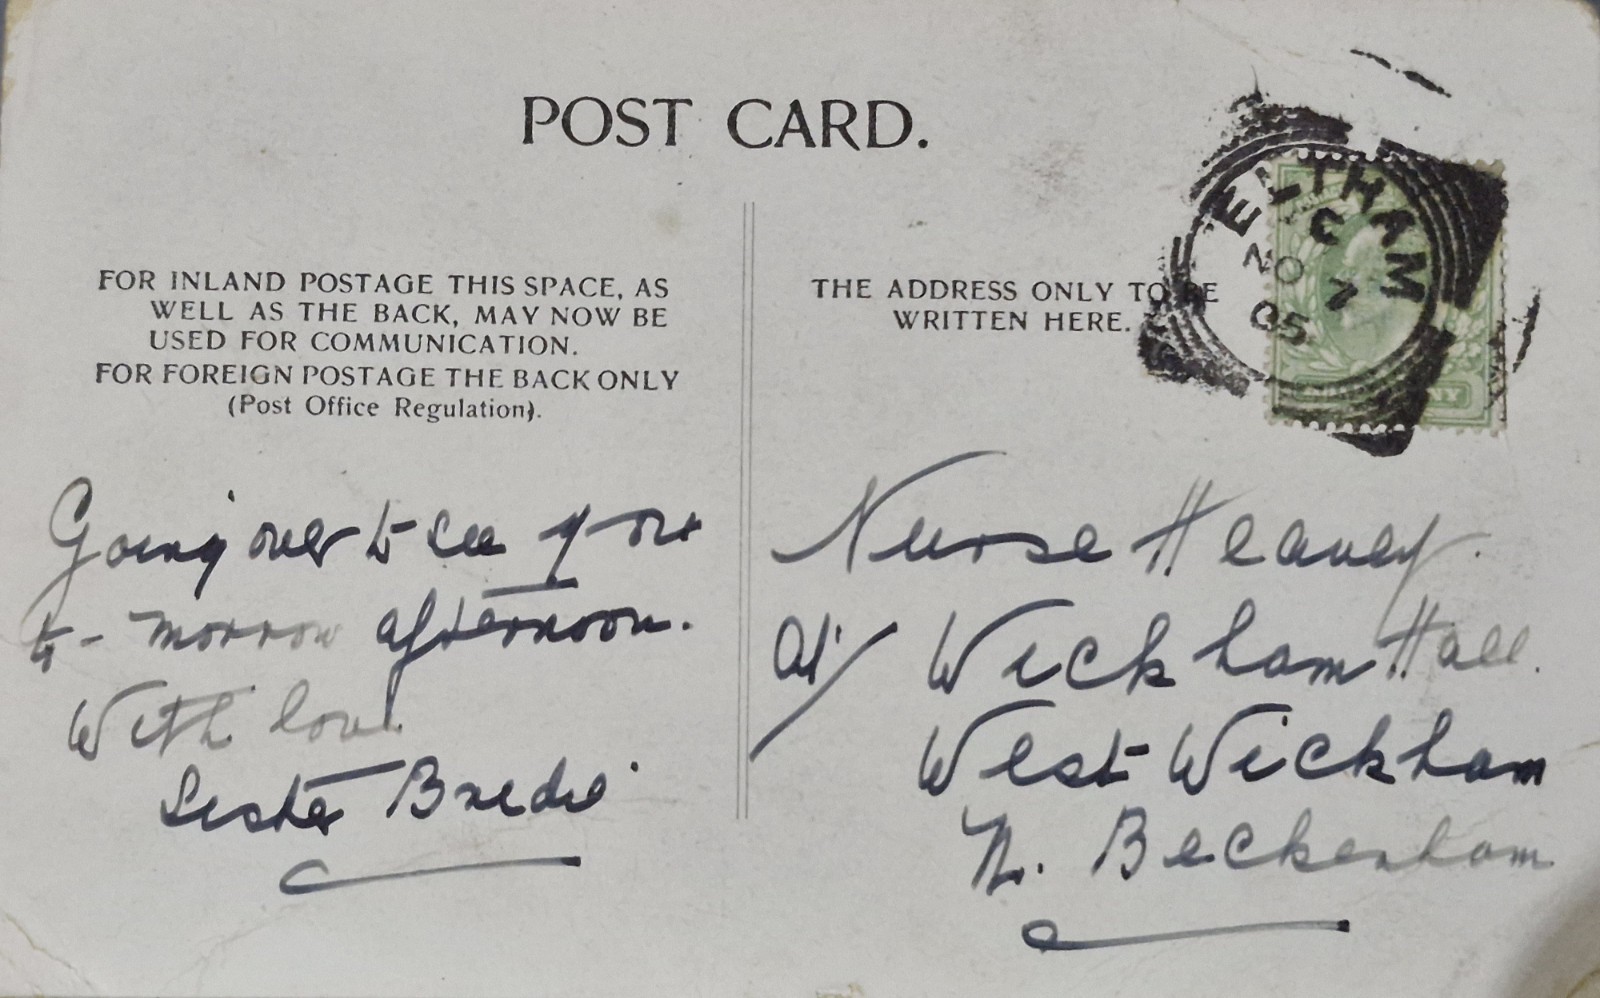 POST CARD.
FOR INLAND POSTAGE THIS SPACE, AS
WELL AS THE BACK, MAY NOW BE
USED FOR COMMUNICATION.
FOR FOREIGN POSTAGE THE BACK ONLY
(Post Office Regulation).
THE ADDRESS ONLY TO BE
WRITTEN HERE.
ELTHAM
C
NO 7
05
Going over to see you
to-morrow afternoon.
With love
Sister
Nurse Heavey.
at/ Wickham Hall.
West Wickham
N. Beckenham